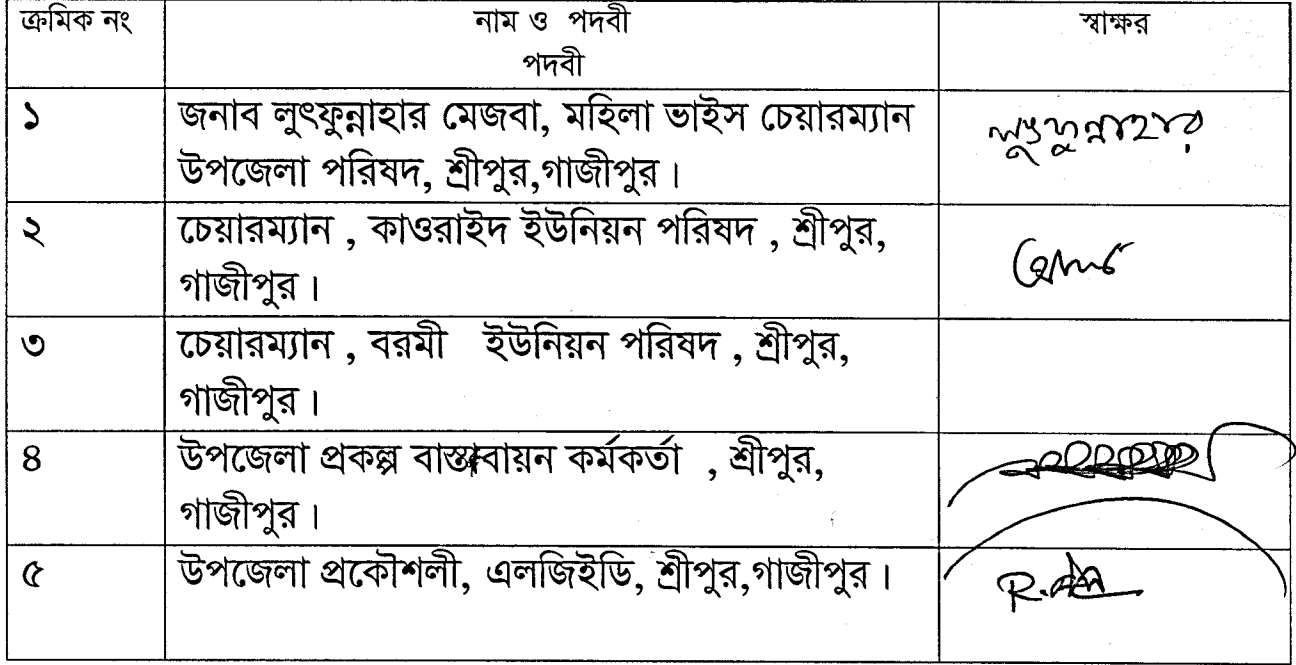 ক্রমিক নং নাম ও পদবী স্বাক্ষর
পদবী
১ জনাব লুৎফুন্নাহার মেজবা, মহিলা ভাইস চেয়ারম্যান লুৎফুন্নাহার
উপজেলা পরিষদ, শ্রীপুর,গাজীপুর।
২ চেয়ারম্যান , কাওরাইদ ইউনিয়ন পরিষদ , শ্রীপুর,
গাজীপুর।
৩ চেয়ারম্যান , বরমী ইউনিয়ন পরিষদ , শ্রীপুর,
গাজীপুর।
৪ উপজেলা প্রকল্প বাস্তাবায়ন কর্মকর্তা , শ্রীপুর,
গাজীপুর।
৫ উপজেলা প্রকৌশলী, এলজিইডি, শ্রীপুর,গাজীপুর।